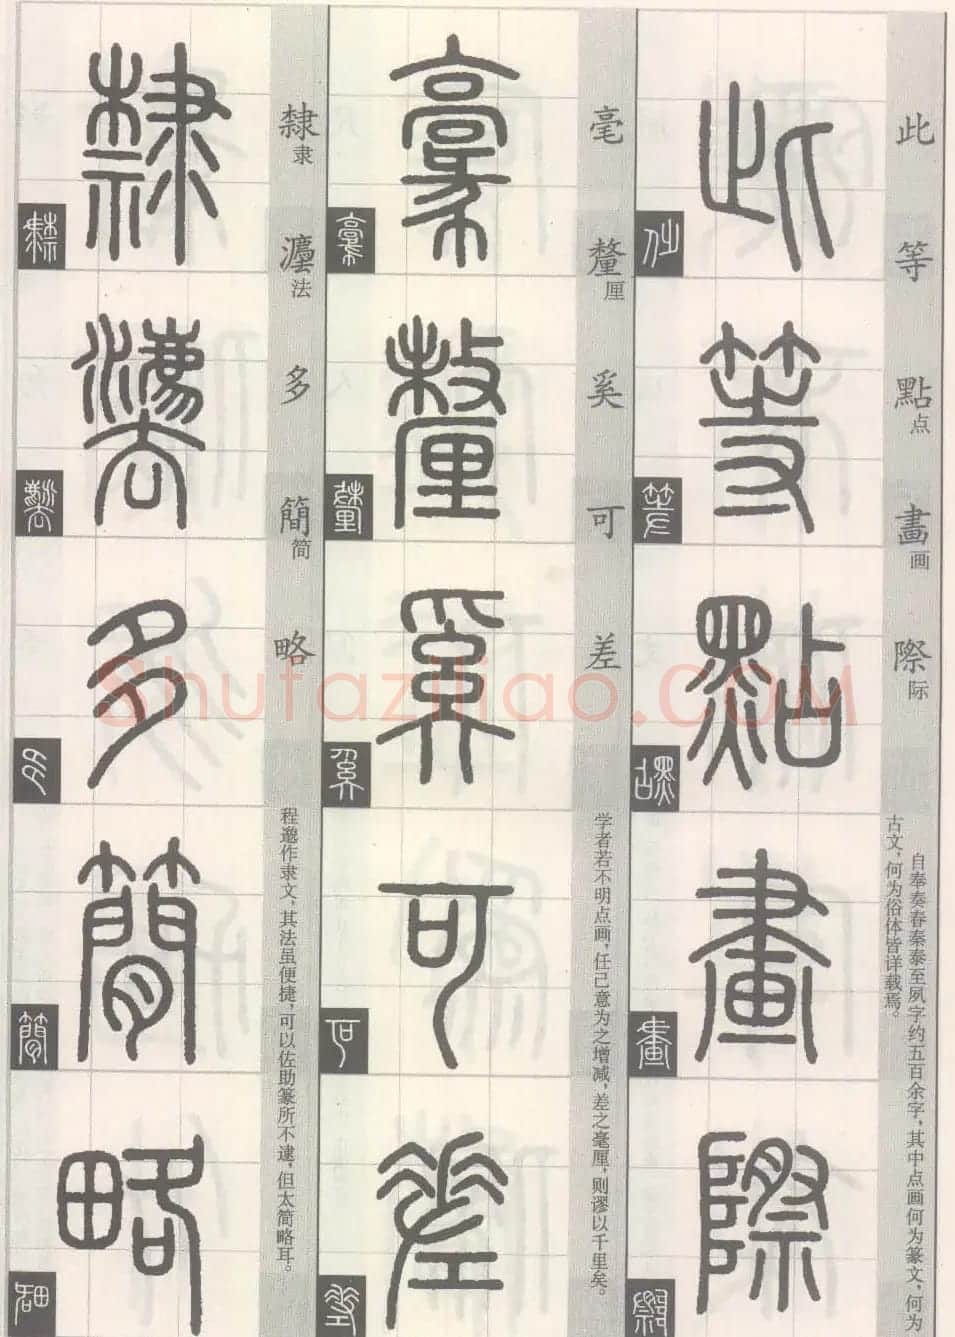 此等點点畫画際际
自奉奏春秦泰至夙字约五百余字，其中点画何为篆文，何为
古文，何为俗体皆详载焉。
此
等
點
畫
際
毫釐厘奚可差
学者若不明点画，任己意为之增减，差之毫厘，则谬以千里矣。
毫
釐
奚
可
差
隸隶灋法多簡简略
程邈作隶文，其法虽便捷，可以佐助篆所不逮，但太简略耳。
隸
灋
多
簡
略
Shufaziliao.COM